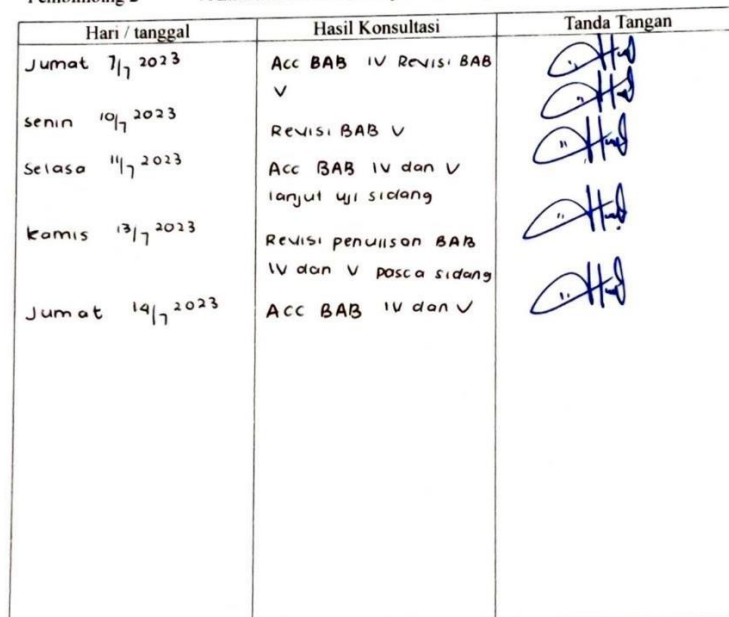 Hari / tanggal Hasil Konsultasi Tanda Tangan
Jumat 7/7 2023 Acc BAB IV Revisi BAB
V
senin 10/7 2023 Revisi BAB V
Selasa 11/7 2023 Acc BAB IV dan V
lanjut uji sidang
kamis 13/7 2023 Revisi penulison BAB
IV dan V pasca sidang
Jumat 14/7 2023 Acc BAB IV dan V